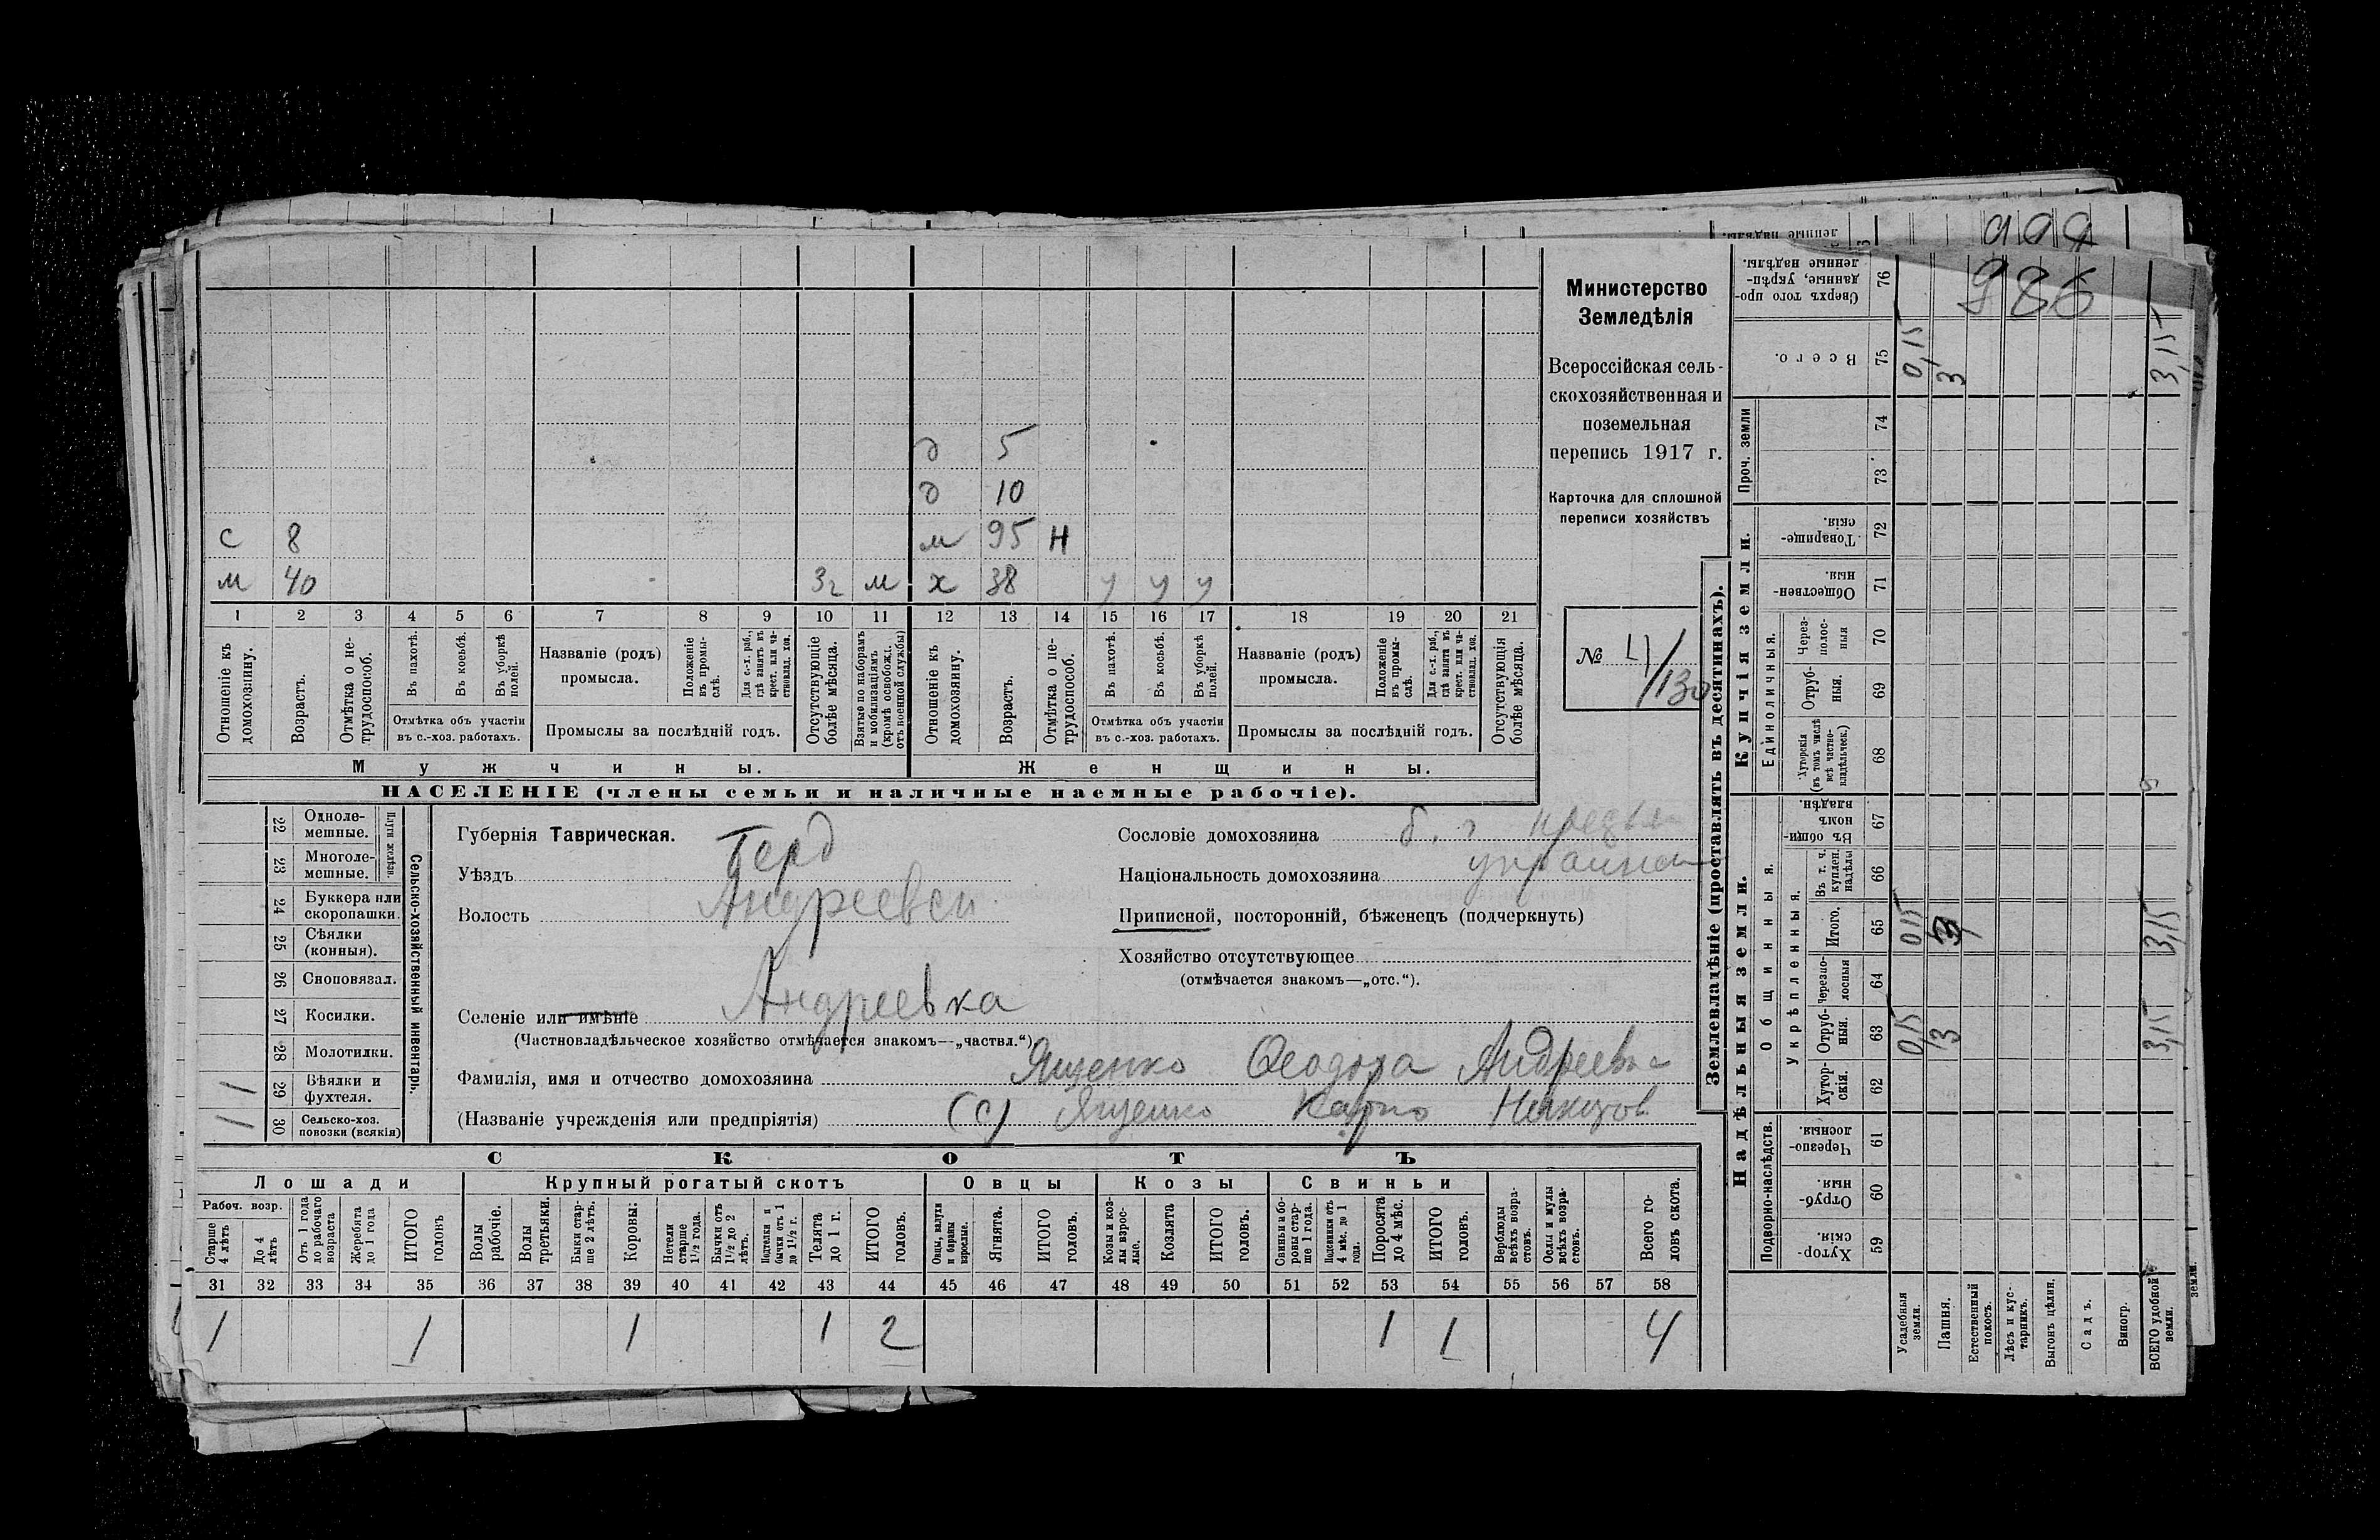 999
986
Министерство
Земледѣлія
Всероссійская сель-
скохозяйственная и
поземельная
перепись 1917 г.
Карточка для сплошной
переписи хозяйствъ
№ 4/130
д 5
д 10
с 8 м 95 н
м 40 3г м х 38 у у у
1 2 3 4 5 6 7 8 9 10 11 12 13 14 15 16 17 18 19 20 21
Отношеніе къ домохозяину.
Возрастъ.
Отмѣтка о не-трудоспособ.
Въ пахотѣ.
Въ косьбѣ.
Въ уборкѣ полей.
Отмѣтка объ участіи
въ с.-хоз. работахъ.
Названіе (родъ)
промысла.
Положеніе въ промы-слѣ.
Для с.-х. раб., гдѣ занятъ въ крест. или ча-стновлад. хоз.
Промыслы за послѣдній годъ.
Отсутствующіе болѣе мѣсяца.
Взятые по наборамъ и мобилизаціямъ (кромѣ освобожд. отъ военной службы)
Отношеніе къ домохозяину.
Возрастъ.
Отмѣтка о не-трудоспособ.
Въ пахотѣ.
Въ косьбѣ.
Въ уборкѣ полей.
Отмѣтка объ участіи
въ с.-хоз. работахъ.
Названіе (родъ)
промысла.
Положеніе въ промы-слѣ.
Для с.-х. раб., гдѣ занята въ крест. или ча-стновлад. хоз.
Промыслы за послѣдній годъ.
Отсутствующія болѣе мѣсяца.
Мужчины. Женщины.
НАСЕЛЕНІЕ (члены семьи и наличные наемные рабочіе).
Сельско-хозяйственный инвентарь.
Плуги желѣзн.
22 Одноле-мешные.
23 Многоле-мешные.
24 Буккера или скоропашки.
25 Сѣялки (конныя).
26 Сноповязал.
27 Косилки.
28 Молотилки.
29 Вѣялки и фухтеля. 1
30 Сельско-хоз. повозки (всякія) 1
Губернія Таврическая.
Уѣздъ Берд
Волость Андреевск
Селеніе или имѣніе Андреевка
(Частновладѣльческое хозяйство отмѣчается знакомъ—„частвл.“)
Фамилія, имя и отчество домохозяина Ященко Феодора Андреевна
(Названіе учрежденія или предпріятія) (с) Ященко Карпо
Сословіе домохозяина б. г
Національность домохозяина украин
Приписной, посторонній, бѣженецъ (подчеркнуть)
Хозяйство отсутствующее
(отмѣчается знакомъ—„отс.“).
СКОТЪ
Лошади Крупный рогатый скотъ Овцы Козы Свиньи
Рабоч. возр.
Старше 4 лѣтъ
До 4 лѣтъ
Отъ 1 года до рабочаго возраста
Жеребята до 1 года
ИТОГО головъ
Волы рабочіе.
Волы третьяки.
Быки стар-ше 2 лѣтъ.
Коровы:
Нетели старше 1½ года.
Бычки отъ 1½ до 2 лѣтъ.
Подтелки и бычки отъ 1 до 1½ г.
Телята до 1 г.
ИТОГО головъ.
Овцы, валухи и бараны взрослые.
Ягнята.
ИТОГО головъ.
Козы и коз-лы взрос-лые.
Козлята
ИТОГО головъ.
Свиньи и бо-ровы стар-ше 1 года.
Подсвинки отъ 4 мѣс. до 1 года.
Поросята до 4 мѣс.
ИТОГО головъ.
Верблюды всѣхъ возра-стовъ.
Ослы и мулы всѣхъ возра-стовъ.
Всего го-ловъ скота.
31 32 33 34 35 36 37 38 39 40 41 42 43 44 45 46 47 48 49 50 51 52 53 54 55 56 57 58
1 1 1 1 2 1 1 4
Землевладѣніе (проставлять въ десятинахъ).
Надѣльныя земли. Купчія земли. Проч. земли
Подворно-наслѣдств.
Общинныя.
Укрѣпленныя.
Единоличныя.
59 Хутор-скія.
60 Отруб-ныя.
61 Черезпо-лосныя.
62 Хутор-скія.
63 Отруб-ныя. 0,15 3 3,15
64 Черезпо-лосныя
65 Итого. 0,15 3 3,15
66 Въ т. ч. куплен. надѣлы
67 Въ общин-номъ владѣн.
68 Хуторскія (въ томъ числѣ всѣ частно-владѣльческ.)
69 Отруб-ныя.
70 Через-полос-ныя
71 Обществен-ныя.
72 Товарище-скія.
73
74
75 Всего. 0,15 3 3,15
76 Сверхъ того про-данные, укрѣп-ленные надѣлы.
Усадебныя земли.
Пашня.
Естественный покосъ.
Лѣсъ и кус-тарникъ.
Выгонъ цѣлин.
Садъ.
Виногр.
ВСЕГО удобной земли.